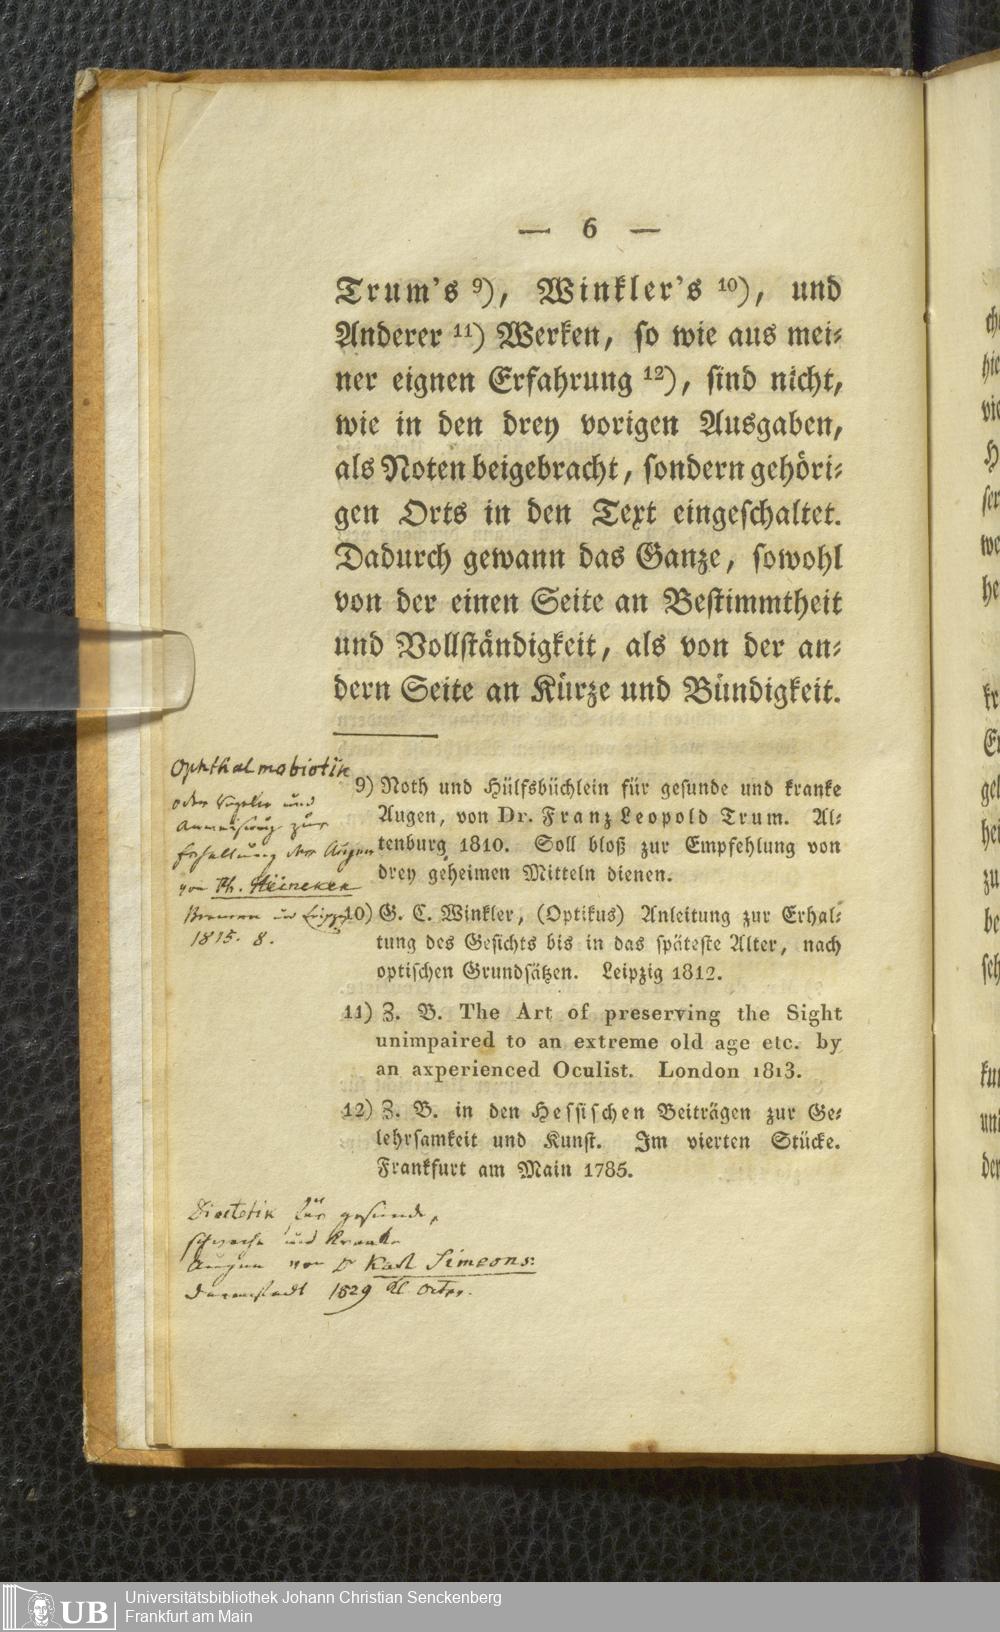 — 6 —
Trum's 9), Winkler's 10), und
Anderer 11) Werken, so wie aus mei⸗
ner eignen Erfahrung 12), sind nicht,
wie in den drey vorigen Ausgaben,
als Noten beigebracht, sondern gehöri⸗
gen Orts in den Text eingeschaltet.
Dadurch gewann das Ganze, sowohl
von der einen Seite an Bestimmtheit
und Vollständigkeit, als von der an⸗
dern Seite an Kürze und Bündigkeit.
Ophthalmobiotik
oder Regeln und
Anweisung zur
Erhaltung der Augen
von Ph. Heineken
Bremen und Leipzig
1815. 8.
9) Noth und Hülfsbüchlein für gesunde und kranke
Augen, von Dr. Franz Leopold Trum. Al⸗
tenburg 1810. Soll bloß zur Empfehlung von
drey geheimen Mitteln dienen.
10) G. C. Winkler, (Optikus) Anleitung zur Erhal⸗
tung des Gesichts bis in das späteste Alter, nach
optischen Grundsätzen. Leipzig 1812.
11) Z. B. The Art of preserving the Sight
unimpaired to an extreme old age etc. by
an axperienced Oculist. London 1813.
12) Z. B. in den Hessischen Beiträgen zur Ge⸗
lehrsamkeit und Kunst. Im vierten Stücke.
Frankfurt am Main 1785.
Diaetetik für gesunde,
schwache und kranke
Augen von Dr Karl Simeons:
Darmstadt 1829 kl. Octav.
UB
Universitätsbibliothek Johann Christian Senckenberg
Frankfurt am Main